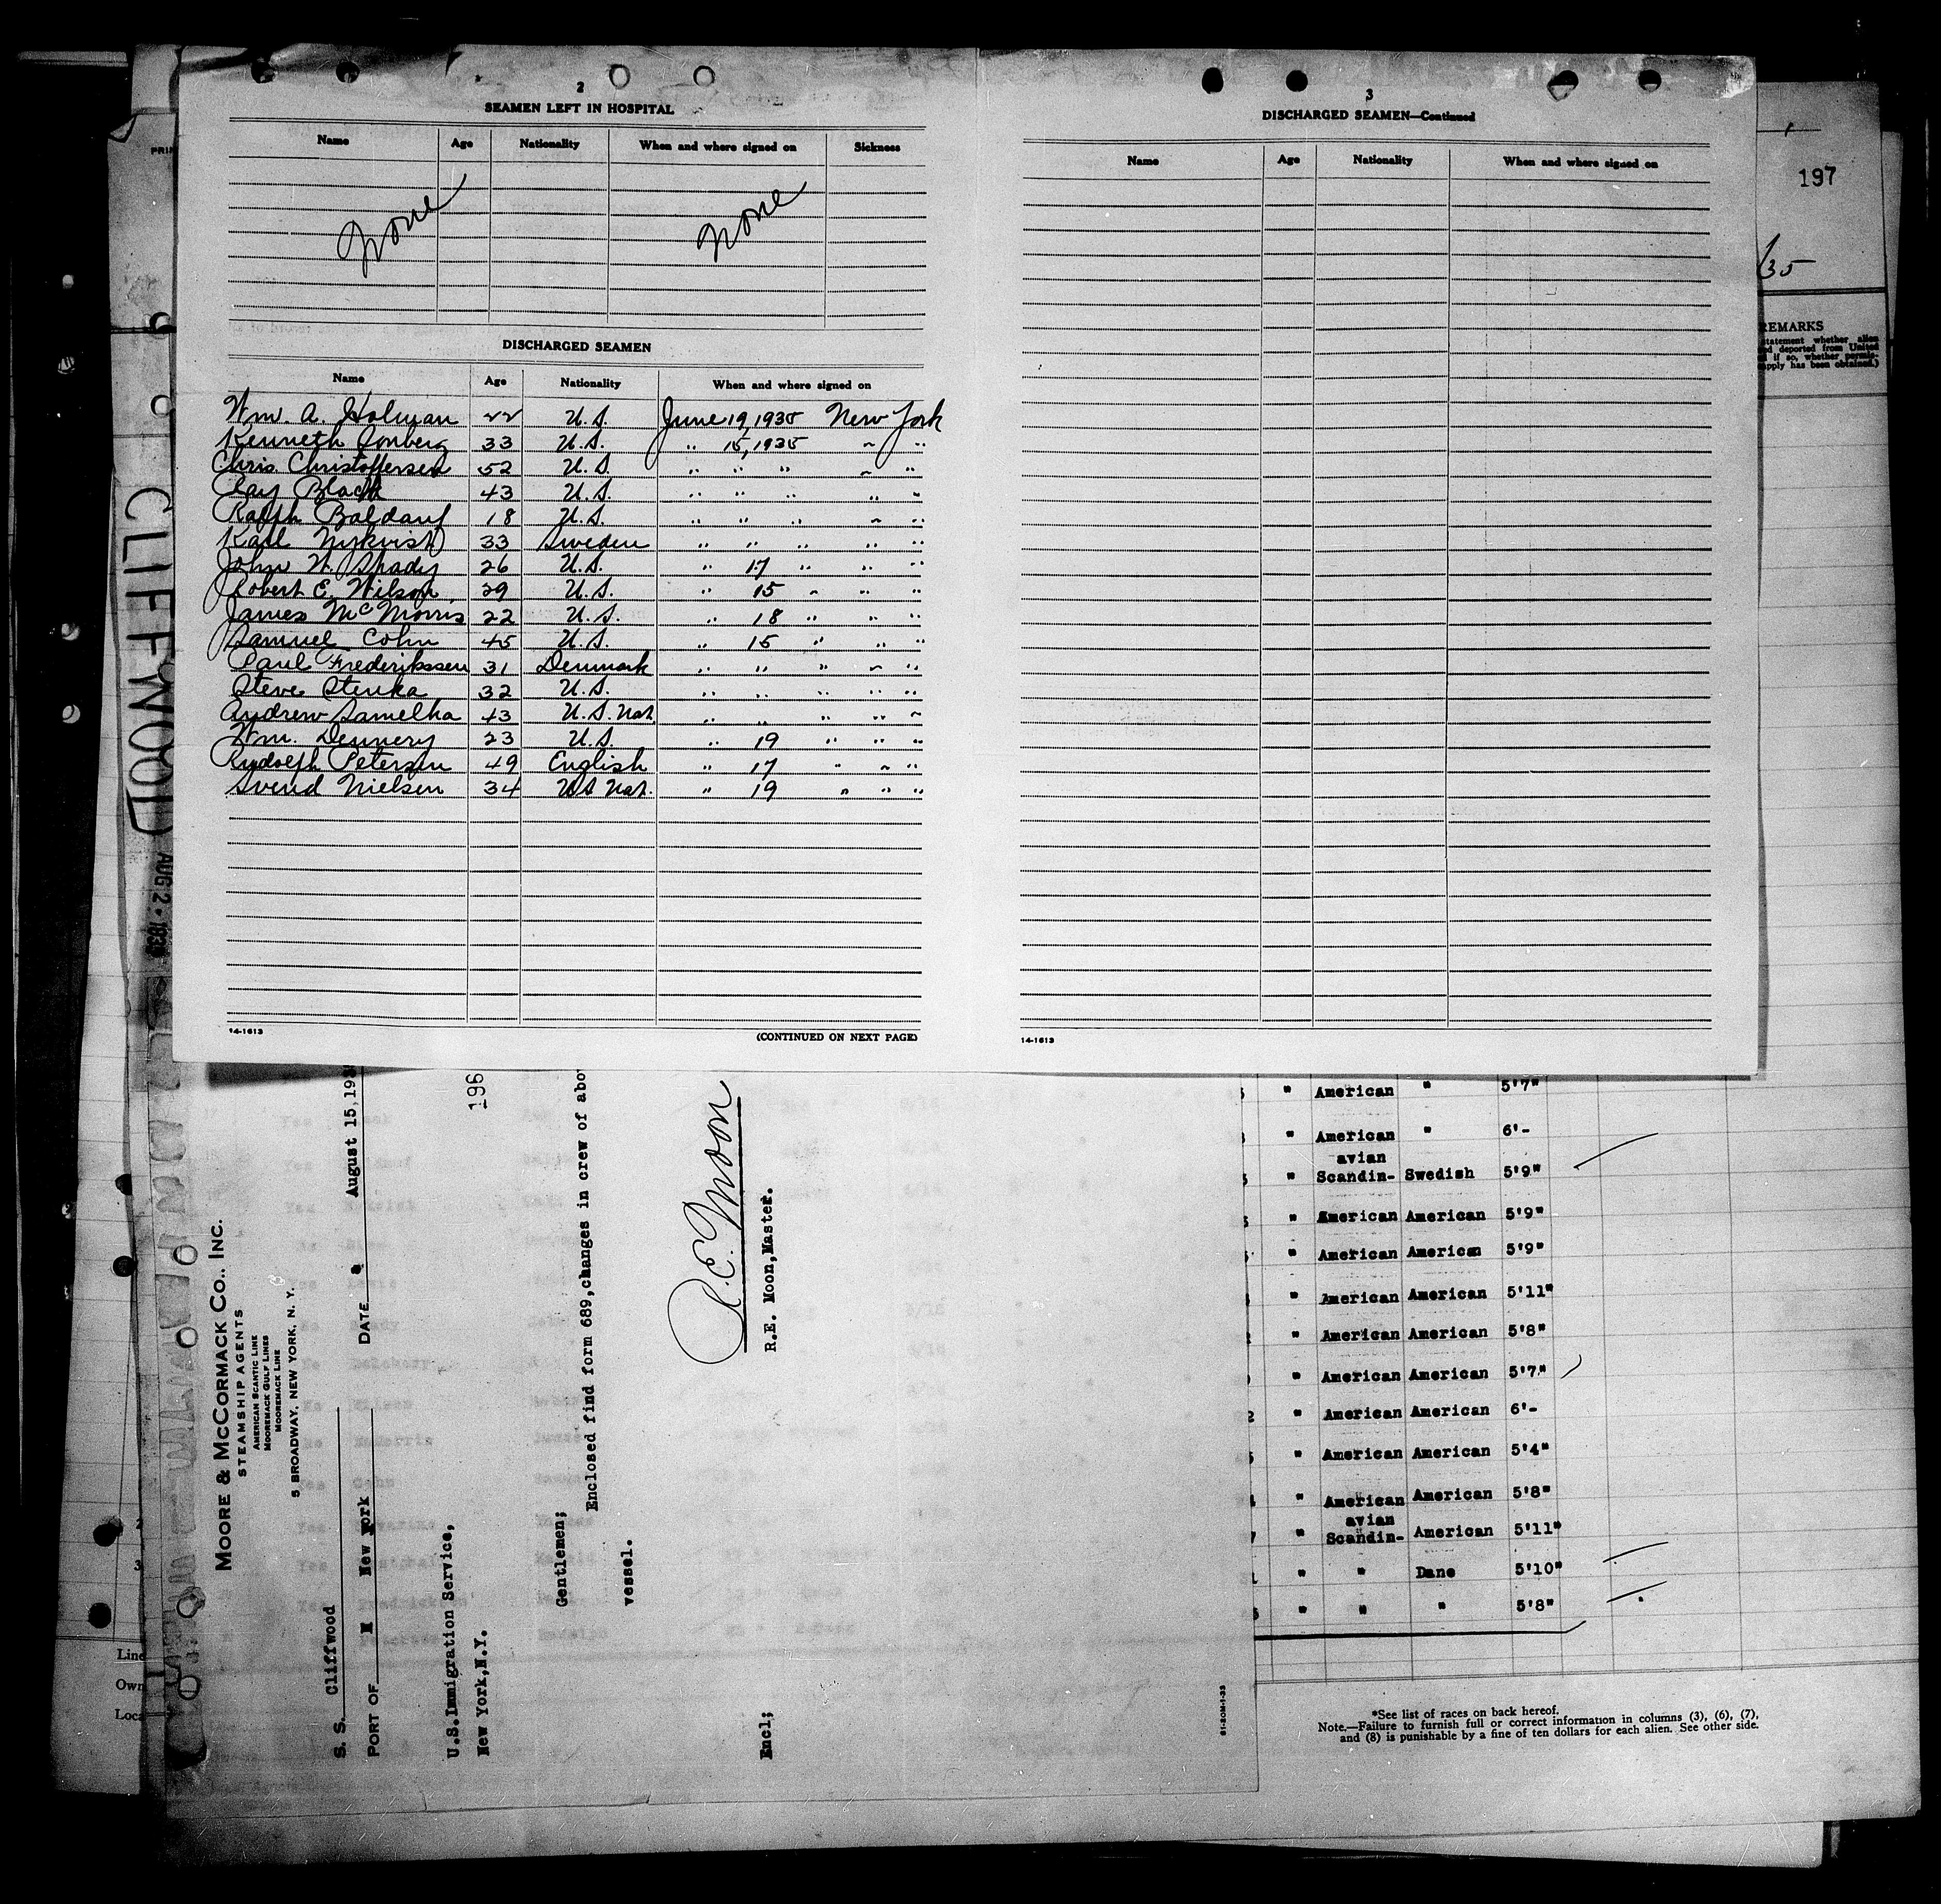 2
SEAMEN LEFT IN HOSPITAL
Name Age Nationality When and where signed on Sickness
None None
DISCHARGED SEAMEN
Name Age Nationality When and where signed on
Wm. A. Holman 22 U.S. June 19, 1935 New York
Kenneth 33 U.S. " 15, 1935 " "
Chris. Christoffersen 52 U.S. " " " " "
Clay Black 43 U.S. " " " " "
Ralph Baldauf 18 U.S. " " " " "
Karl Nykvist 33 Sweden " " " " "
John W. Spady 26 U.S. " 17 " " "
Robert E. Wilson 29 U.S. " 15 " " "
James McMorris 22 U.S. " 18 " " "
Samuel Cohn 45 U.S. " 15 " " "
Paul Frederikssen 31 Denmark " " " " "
Steve Stenka 32 U.S. " " " " "
Andrew Samelha 43 U.S. Nat. " " " " "
Wm. Dennery 23 U.S. " 19 " " "
Rudolph Peterson 49 English " 17 " " "
Svend Nielsen 34 US Nat. " 19 " " "
14-1613
(CONTINUED ON NEXT PAGE)
3
DISCHARGED SEAMEN—Continued
Name Age Nationality When and where signed on
14-1613
197
/35
REMARKS
statement whether alien
ed deported from United
if so, whether permis-
apply has been obtained.)
CLIFFWOOD
AUG 2
MOORE & McCORMACK CO., INC.
STEAMSHIP AGENTS
AMERICAN SCANTIC LINE
MOOREMACK GULF LINES
MOOREMACK LINE
5 BROADWAY, NEW YORK, N. Y.
S. S. Cliffwood
PORT OF N New York DATE August 15, 193
196
U.S.Immigration Service,
New York,N.Y.
Gentlemen;
Enclosed find form 689,changes in crew of abo
vessel.
R.E. Moon
R.E. Moon,Master.
Encl;
" American " 5'7"
" American " 6'-
avian
" Scandin- Swedish 5'9"
" American American 5'9"
" American American 5'9"
" American American 5'11"
" American American 5'8"
" American American 5'7"
" American American 6'-
" American American 5'4"
" American American 5'8"
avian
" Scandin- American 5'11"
" " Dane 5'10"
" " " 5'8"
*See list of races on back hereof.
Note.—Failure to furnish full or correct information in columns (3), (6), (7),
and (8) is punishable by a fine of ten dollars for each alien. See other side.
Line
Own
Loca